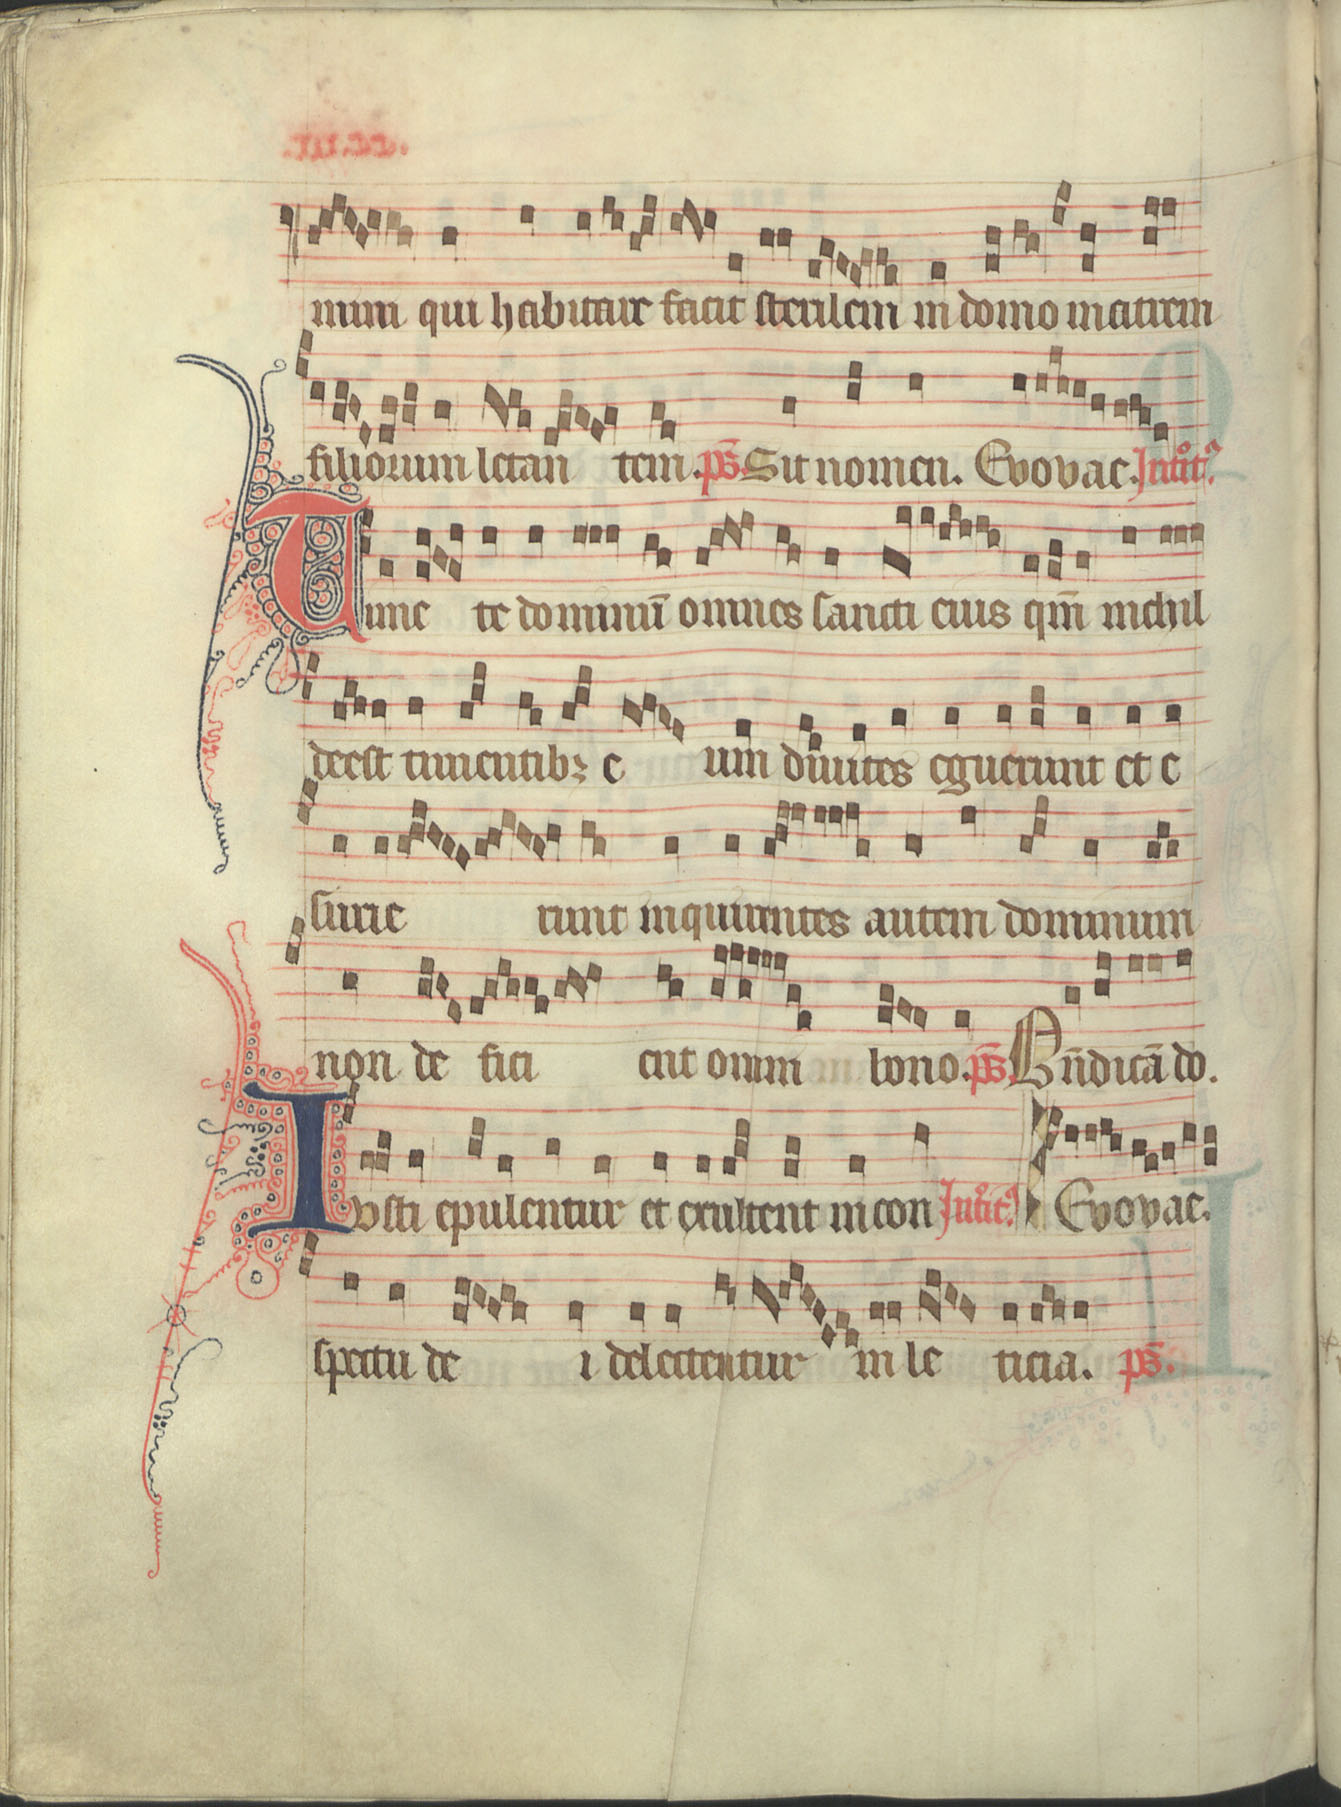 mum qui habitare facit sterilem in domo matrem
filiorum letan tem. ps̄. Sit nomen. Evovae. Introit͛
Timete dominū omnes sancti eius qm̄ nichil
deest timentibꝫ e um divites eguerunt et e
surie runt inquirentes autem dominum
non de fici ent omni bono. ps̄. Bn̄dicā do.
Iusti epulentur et exultent in con Introit͛ Evovae.
spectu de i delectentur in le ticia. ps̄.